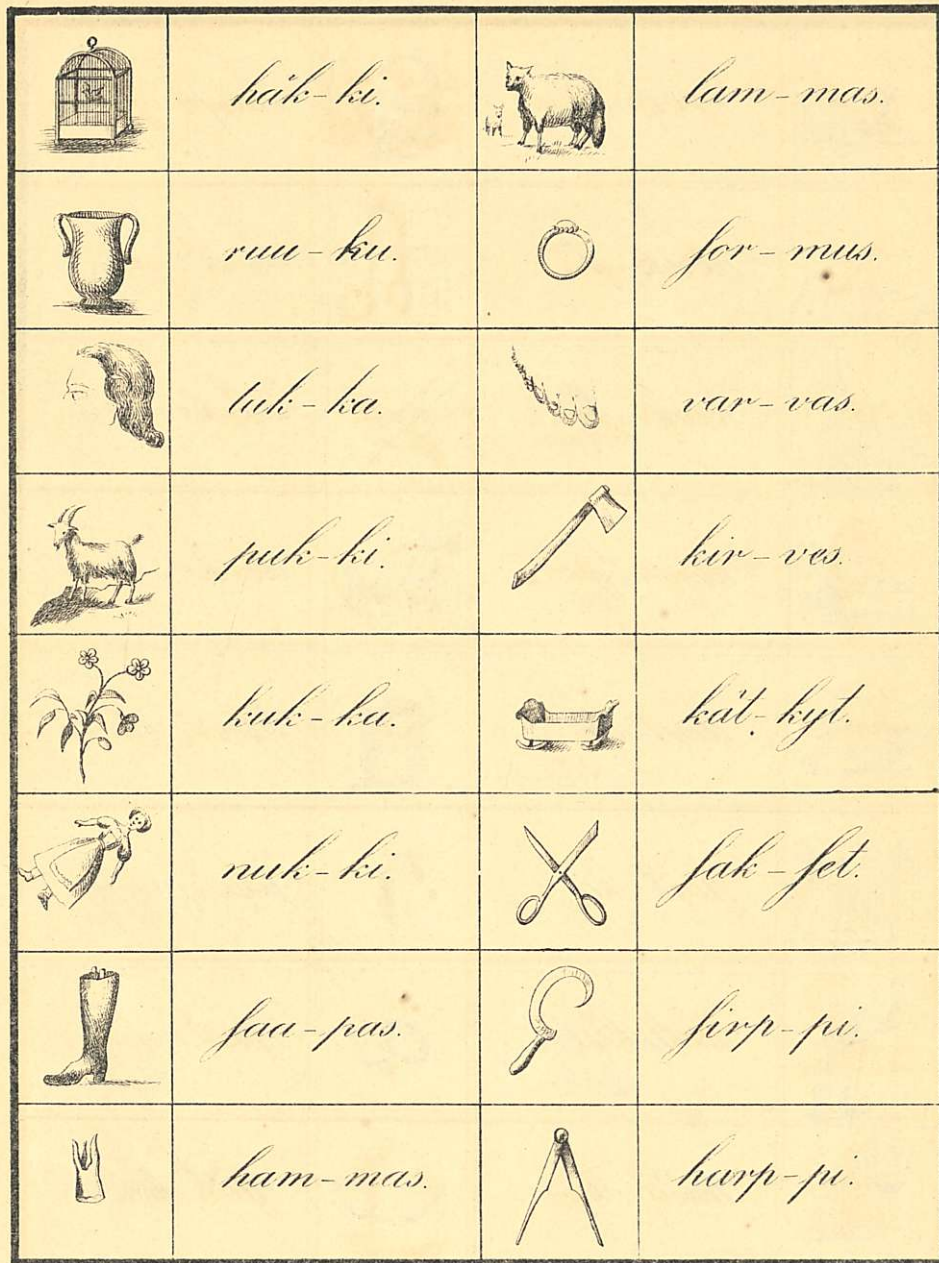 häk-ki. lam-mas.
ruu-ku. ſor-mus.
tuk-ka. var-vas.
puk-ki. kir-ves.
kuk-ka. kät-kyt.
nuk-ki. ſak-ſet.
ſaa-pas. ſirp-pi.
ham-mas. harp-pi.